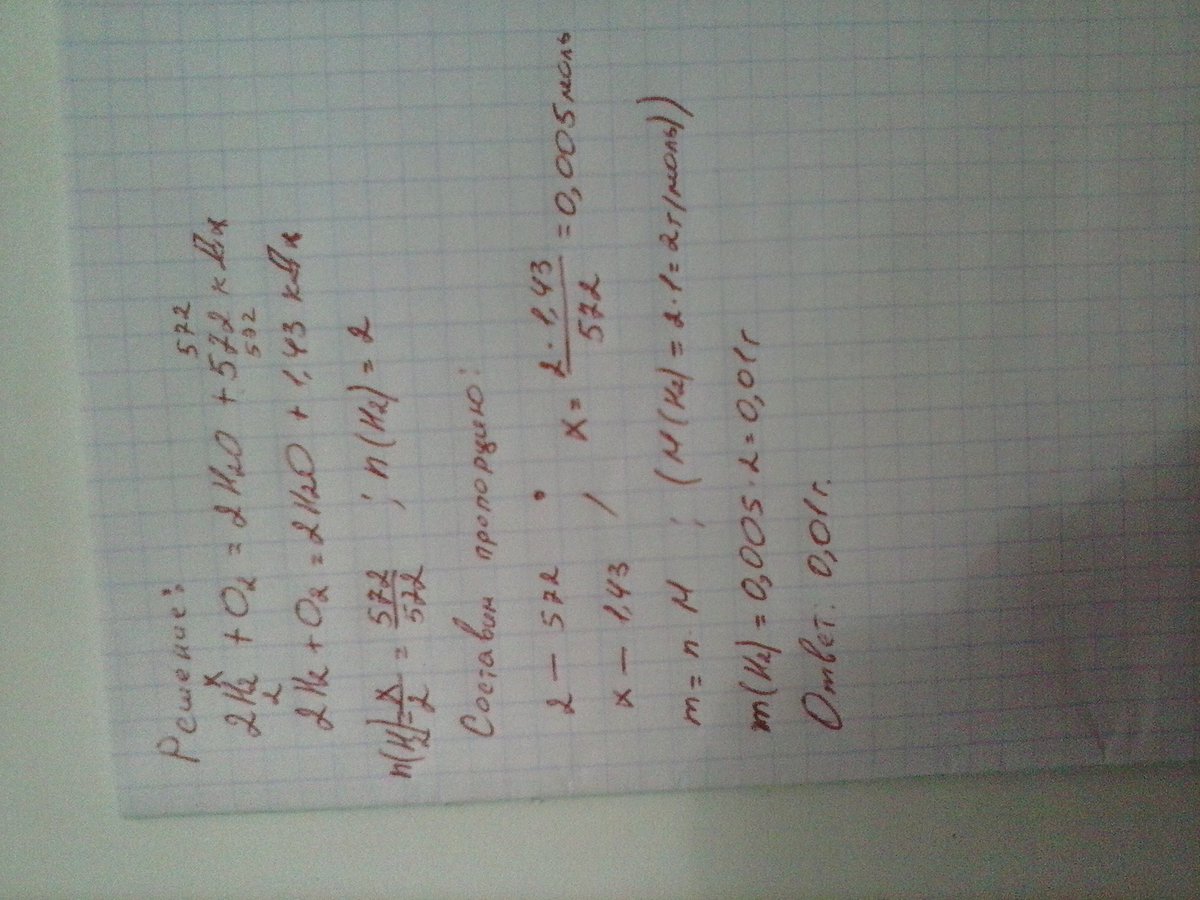 Решение:
x 572
2H₂ + O₂ = 2H₂O + 572 кДж
2 572
2H₂ + O₂ = 2H₂O + 1,43 кДж
n(H₂) = x/2 = 572/572 ; n(H₂) = 2
Составим пропорцию:
2 — 572
x — 1,43 / x = 2·1,43/572 = 0,005 моль
m = n·M ; (M(H₂) = 2·1 = 2г/моль))
m(H₂) = 0,005·2 = 0,01г
Ответ: 0,01г.